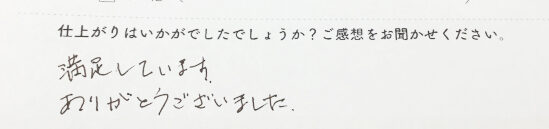 仕上がりはいかがでしたでしょうか？ご感想をお聞かせください。
満足しています.
ありがとうございました.